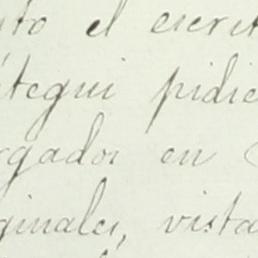 nto el escrit
tegui pidie
rgador en
ginales, vista